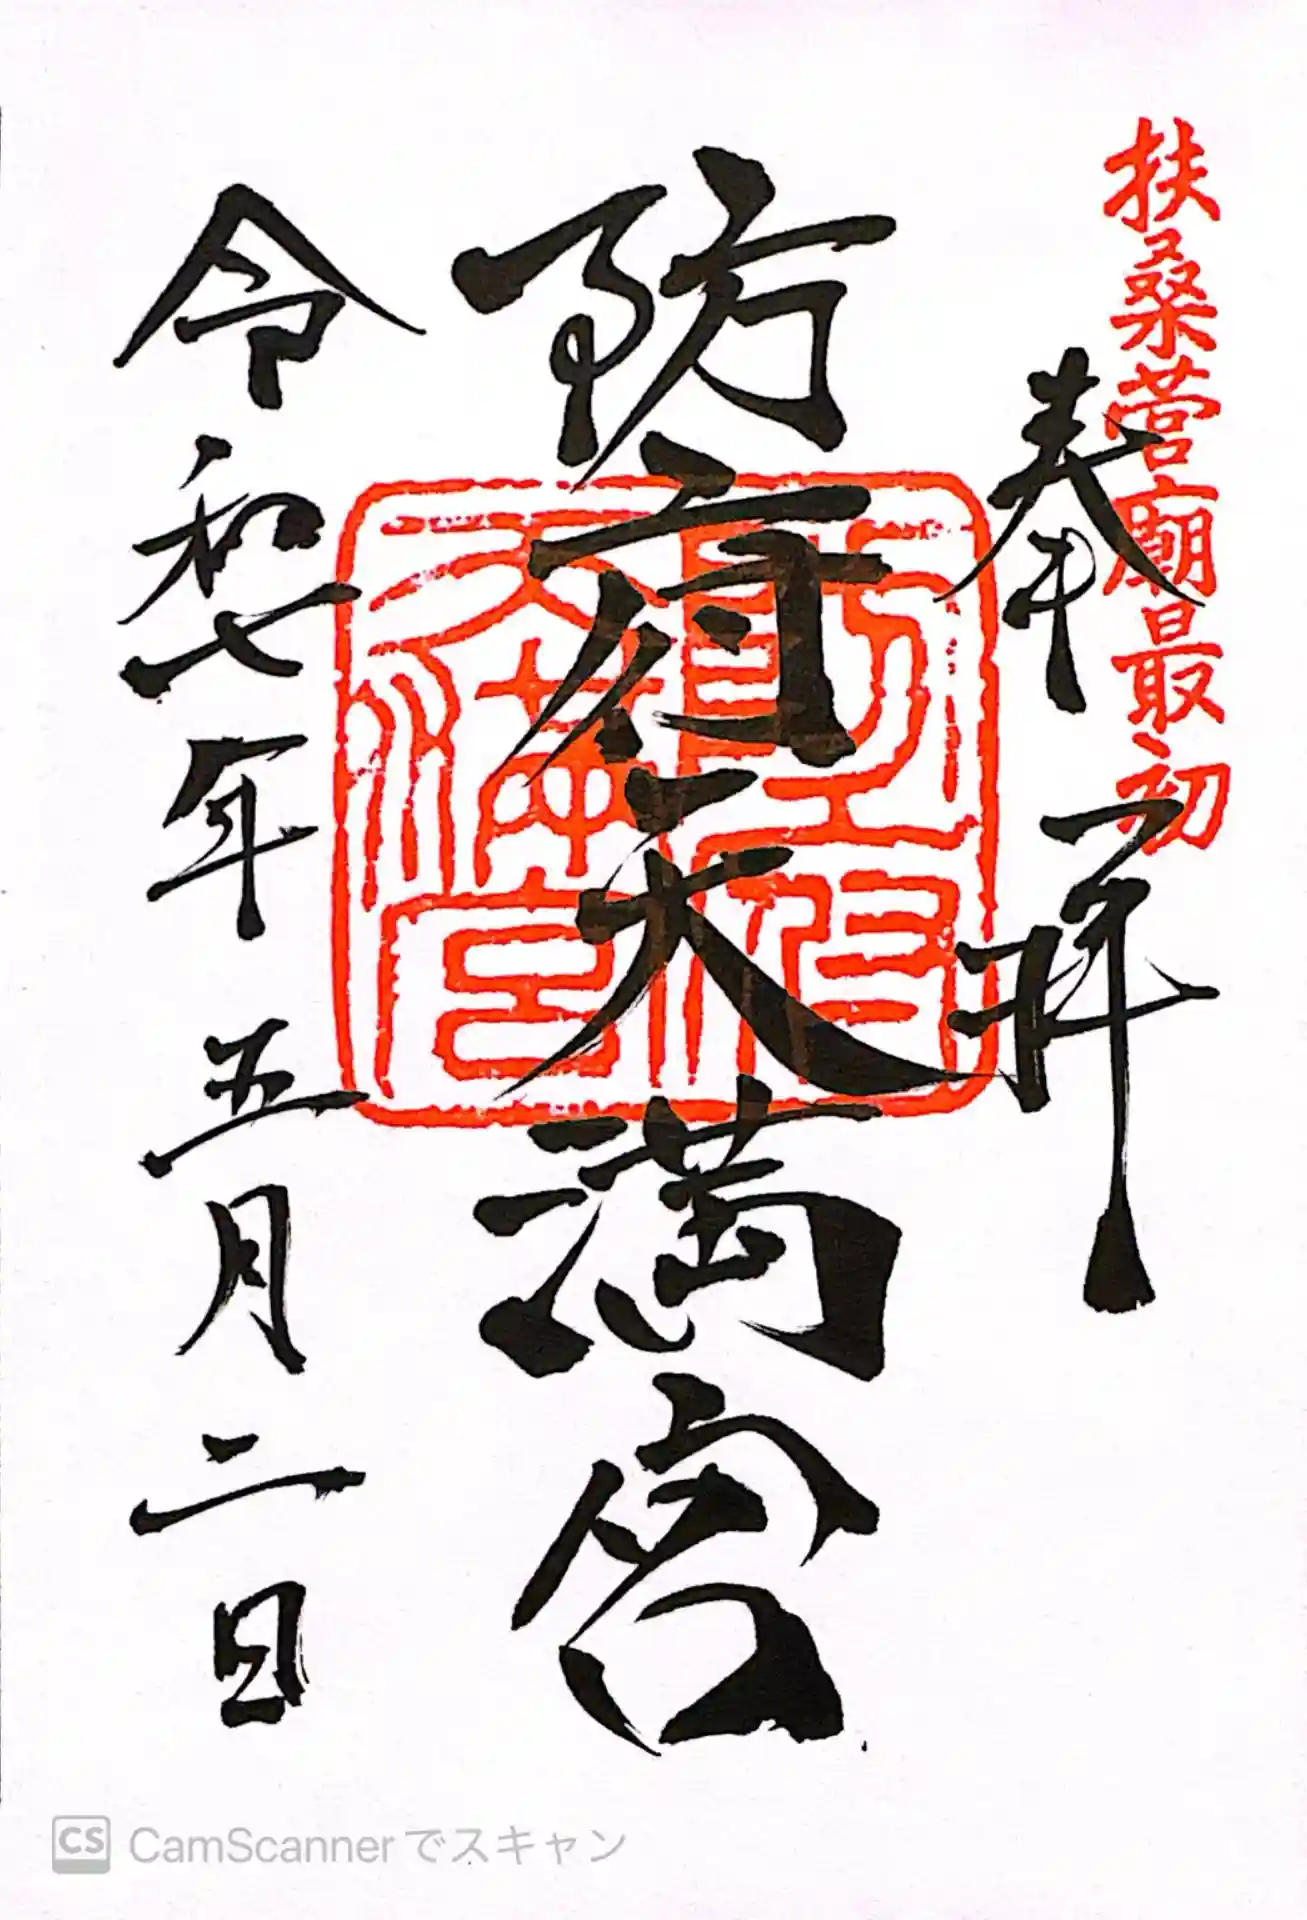 扶桑菅廟最初
奉拝
防府天満宮
天滿宮
令和七年五月二日
CS CamScannerでスキャン